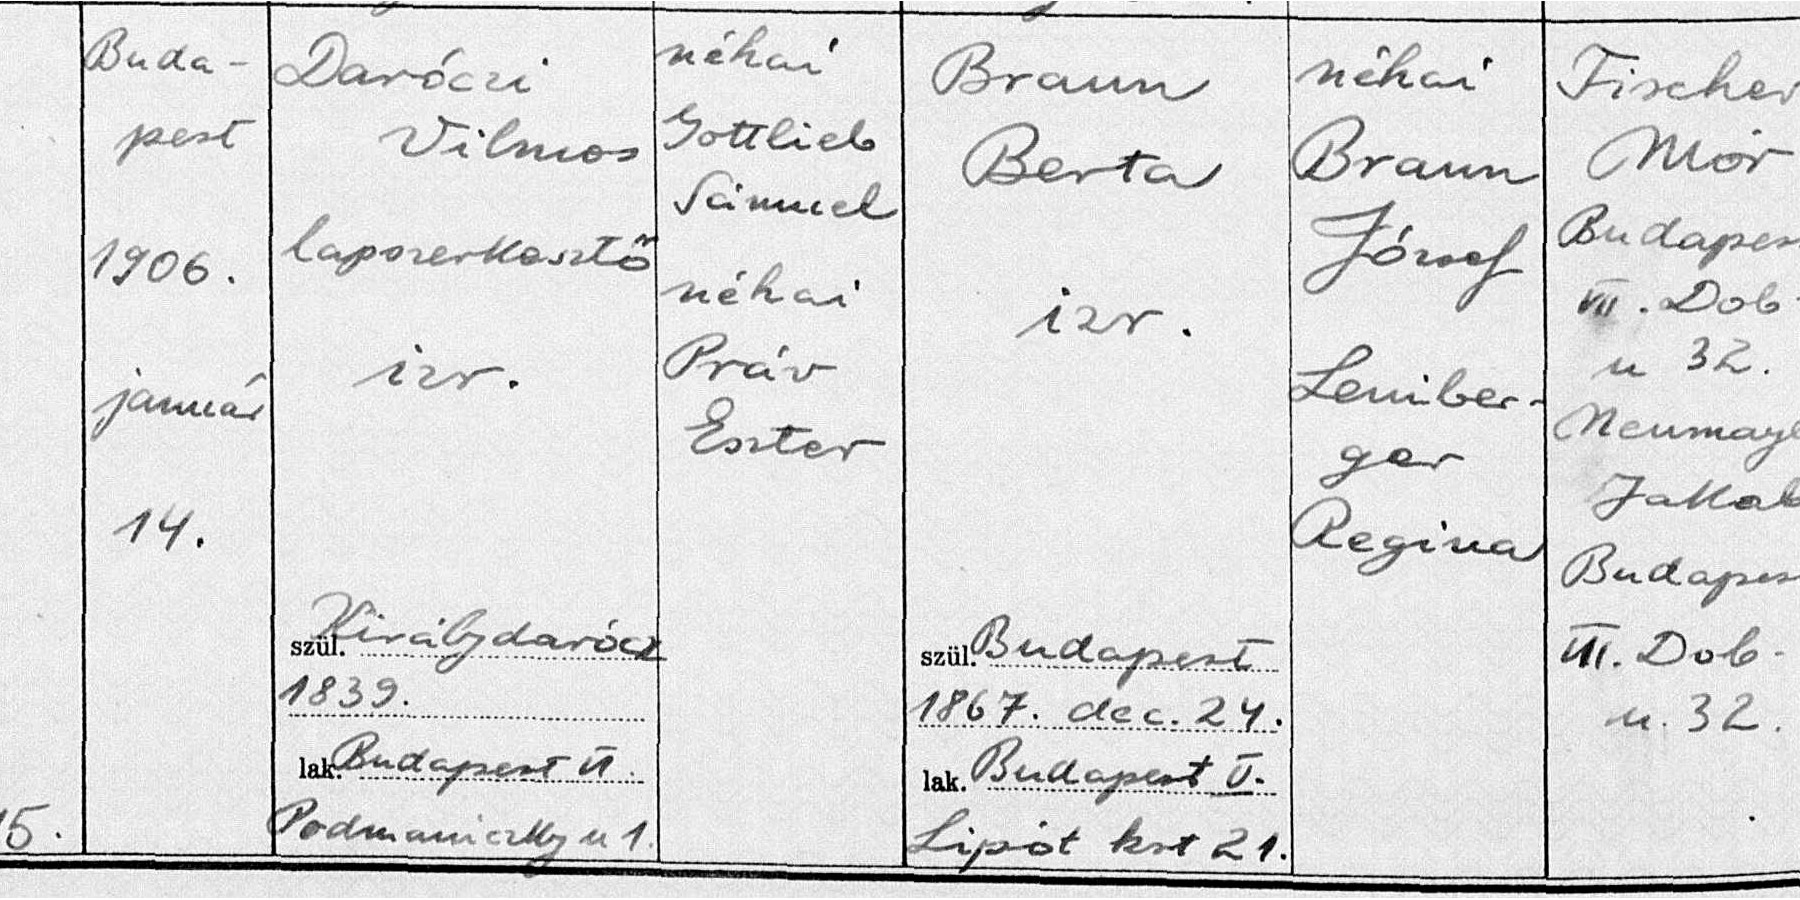 Buda-
pest
1906.
január
14.
Daróczi
Vilmos
lapszerkesztő
izr.
szül. Királydarócz
1839.
lak. Budapest VI.
Podmaniczky u 1.
néhai
Gottlieb
Sámuel
néhai
Práv
Eszter
Braun
Berta
izr.
szül. Budapest
1867. dec. 24.
lak. Budapest V.
Lipót krt 21.
néhai
Braun
József
Lemiber-
ger
Regina
Fischer
Mór
Budapes
VII. Dob-
u 32.
Neumaye
Jakab
Budapes
VII. Dob-
u. 32.
15.